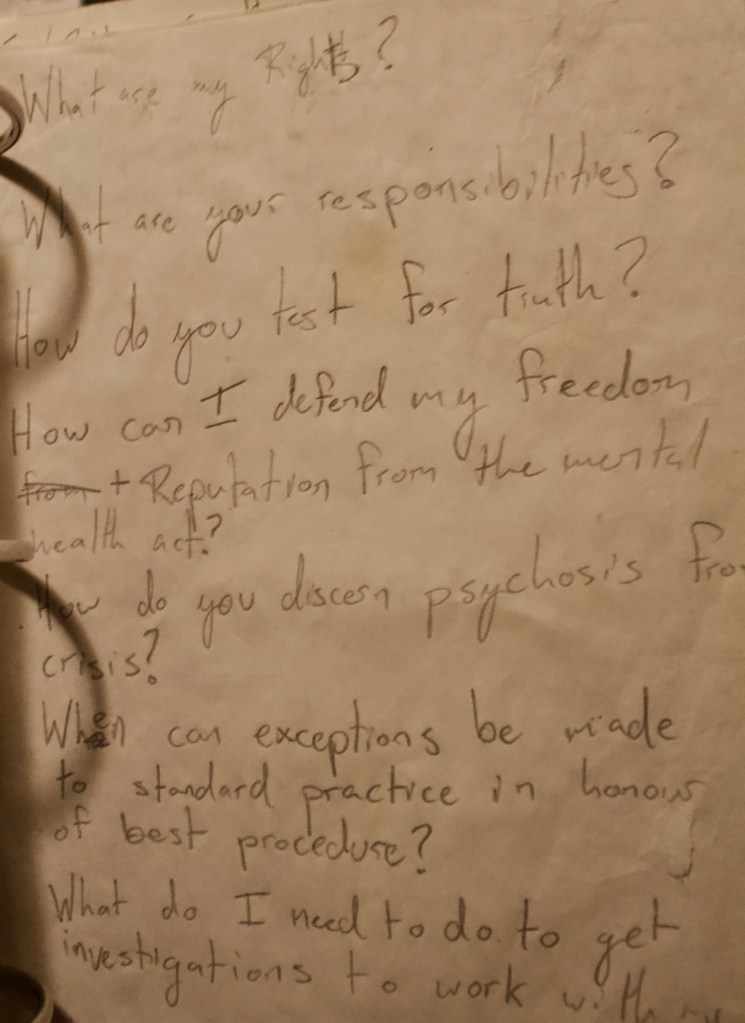 What are my Rights?
What are your responsibilities?
How do you test for truth?
How can I defend my freedom
from + Reputation from the mental
health act?
How do you discern psychosis fro
crisis?
When can exceptions be made
to standard practice in honour
of best procedure?
What do I need to do to get
investigations to work with